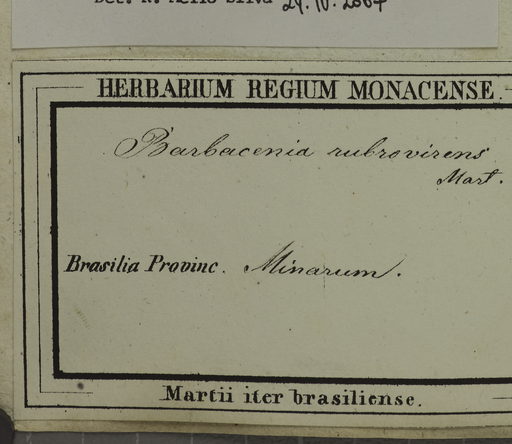 Det. R. Mello-Silva 24.IV.2007
HERBARIUM REGIUM MONACENSE.
Barbacenia rubrovirens
Mart.
Brasilia Provinc. Minarum.
Martii iter brasiliense.